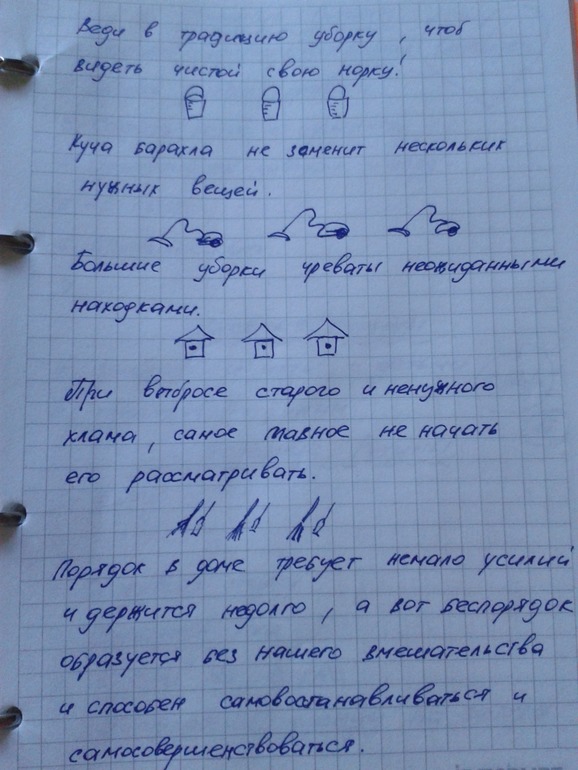 Веди в традицию уборку, чтоб
видеть чистой свою норку!
Куча барахла не заменит нескольких
нужных вещей.
Большие уборки чреваты неожиданными
находками.
При выбросе старого и ненужного
хлама, самое главное не начать
его рассматривать.
Порядок в доме требует немало усилий
и держится недолго, а вот беспорядок
образуется без нашего вмешательства
и способен самовостанавливаться и
самосовершенствоваться.